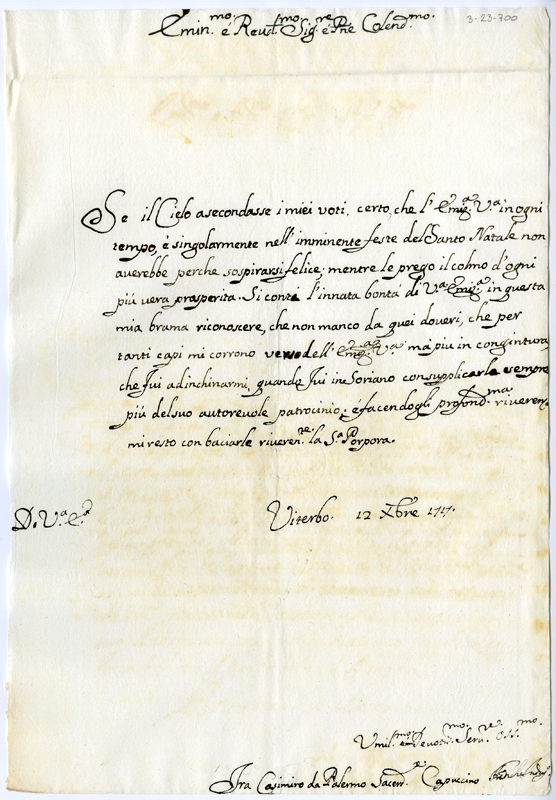 3-23-700
Emin.mo e Reud.mo Sig.re e Pne Colend.mo
Se il Cielo asecondasse i miei voti, certo, che l' Emiz.a V.a in ogni
tempo, e singolarmente nell' imminente feste del Santo Natale non
auerebbe perche sospirarsi felice; mentre le prego il colmo d'ogni
più vera prosperita. Si conti l'innata bontá di V.a Emiz.a in questa
mia brama riconoscere, che non manco da quei doueri, che per
tanti capi mi corrono verso dell' Emiz.a V.a má piu in congintura,
che fui ad inchinarmi, quando fui in Soriano con supplicarla sempre
piú del suo autoreuole patrocinio; é facendogli profond.ma riverenza
mi resto con baciarle riveren.te la S.a Porpora.
D. V.a E.a
Viterbo. 12 Xbre 1717.
Vmil.mo e Deuot.mo Seru.re Oss.mo
Fra Casimiro da Palermo Sacerd.te Capuccino